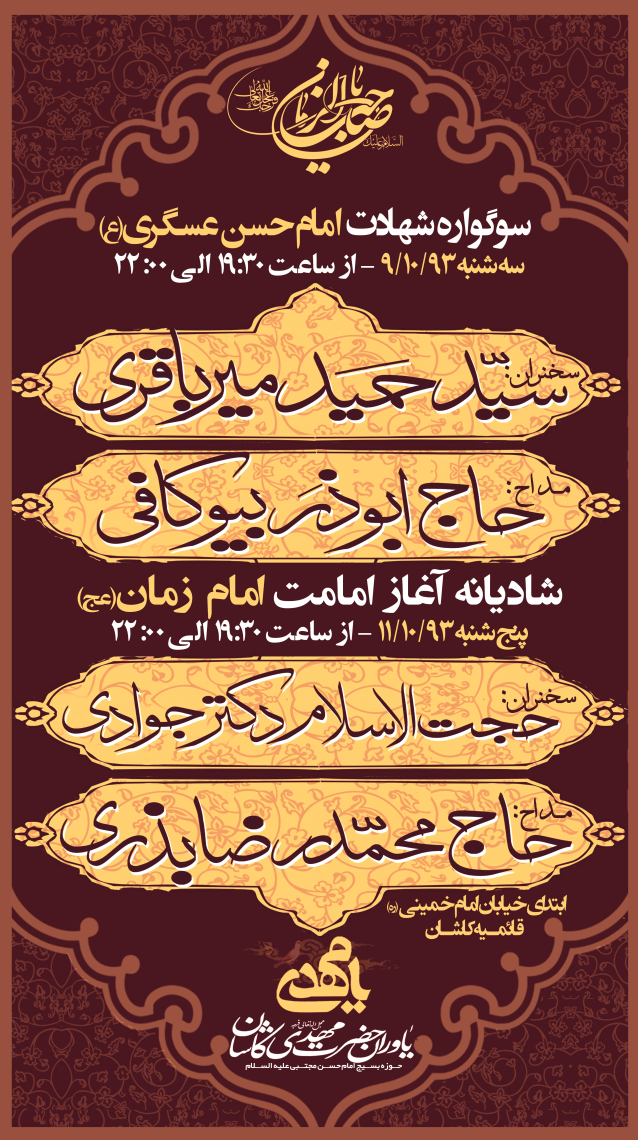 السلام علیک
یا صاحب الزمان
سوگواره شهادت امام حسن عسگری (ع)
سه شنبه ۹/۱۰/۹۳ - از ساعت ۱۹:۳۰ الی ۲۲:۰۰
سخنران:
سیّد حمید میرباقری
مداح:
حاج ابوذر بیوکافی
شادیانه آغاز امامت امام زمان (عج)
پنج شنبه ۱۱/۱۰/۹۳ - از ساعت ۱۹:۳۰ الی ۲۲:۰۰
سخنران:
حجت الاسلام دکتر جوادی
مداح:
حاج محمّدرضا بذری
ابتدای خیابان امام خمینی (ره)
قائمیه کاشان
یا مهدی
یاوران حضرت مهدی کاشان
حوزه بسیج امام حسن مجتبی علیه السلام